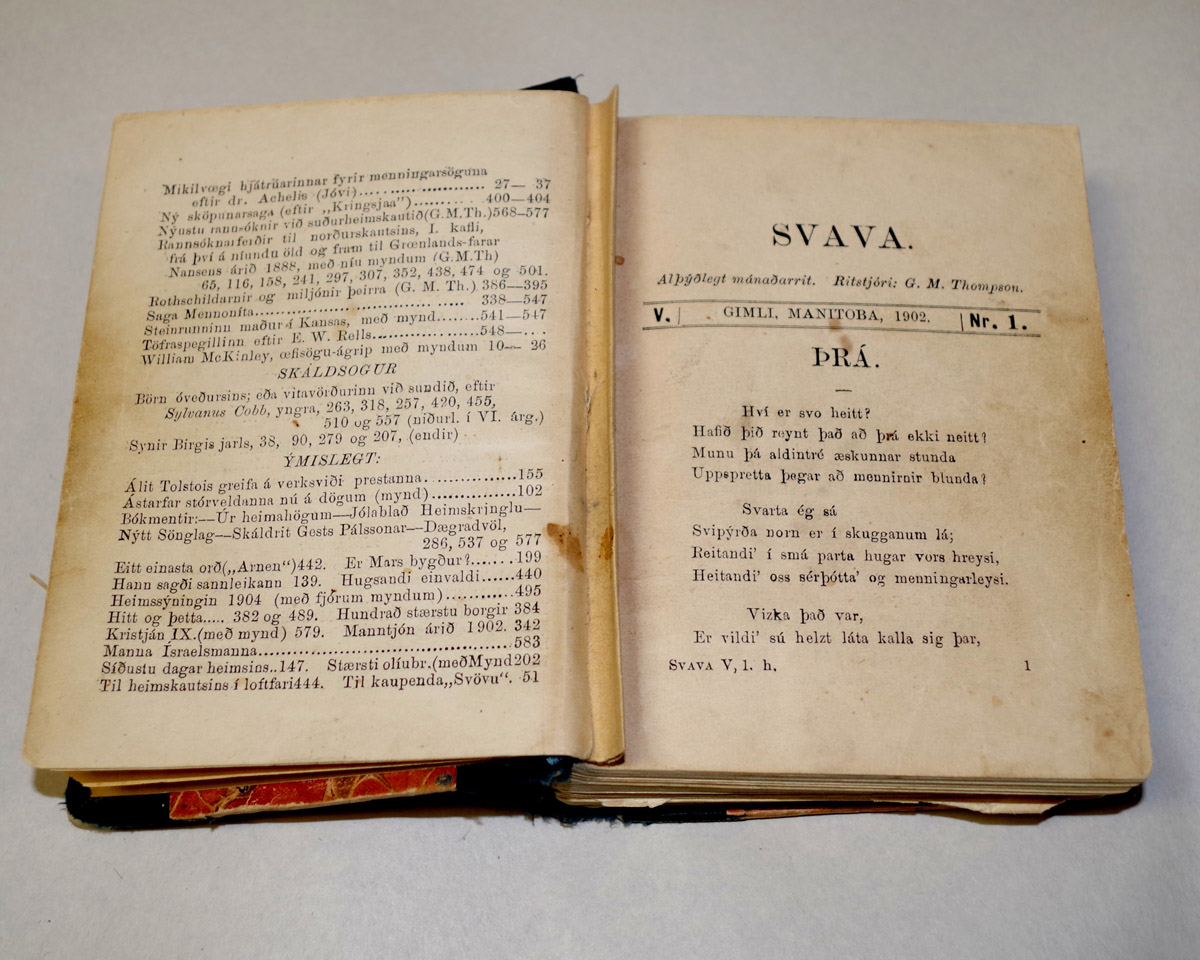 Mikilvægi hjátrúarinnar fyrir menningarsöguna
eftir dr. Achelis (Jóvi)........................ 27— 37
Ný sköpunarsaga (eftir „Kringsjaa“)......... 400—404
Nýustu rannsóknir við suðurheimskautið(G.M.Th.)568—577
Rannsóknarferðir til norðurskautsins, I. kafli,
frá því á níundu öld og fram til Grœnlands-farar
Nansens árið 1888, með níu myndum (G.M.Th)
65, 116, 158, 241, 297, 307, 352, 438, 474 og 501.
Rothschildarnir og miljónir þeirra (G. M. Th.) 386—395
Saga Mennoníta............................ 338—547
Steinrunninn maður í Kansas, með mynd.......541—547
Töfraspegillinn eftir E. W. Rells...............548—...
William McKinley, œfisögu-ágrip með myndum 10— 26
SKÁLDSOGUR
Börn óveðursins; eða vitavörðurinn við sundið, eftir
Sylvanus Cobb, yngra, 263, 318, 257, 420, 455,
510 og 557 (niðurl. í VI. árg.)
Synir Birgis jarls, 38, 90, 279 og 207, (endir)
ÝMISLEGT:
Álit Tolstois greifa á verksviði prestanna...............155
Ástarfar stórveldanna nú á dögum (mynd)..............102
Bókmentir:—Úr heimahögum—Jólablað Heimskringlu—
Nýtt Sönglag—Skáldrit Gests Pálssonar—Dægradvöl,
286, 537 og 577
Eitt einasta orð(„Arnen“)442. Er Mars bygður?.......199
Hann sagði sannleikann 139. Hugsandi einvaldi......440
Heimssýningin 1904 (með fjórum myndum)...........495
Hitt og þetta..... 382 og 489. Hundrað stærstu borgir 384
Kristján IX.(með mynd) 579. Manntjón árið 1902. 342
Manna Ísraelsmanna.......................................583
Síðustu dagar heimsins..147. Stærsti olíubr.(meðMynd202
Til heimskautsins í loftfari444. Til kaupenda„Svövu“. 51
SVAVA.
Alþýðlegt mánaðarrit. Ritstjóri: G. M. Thompson.
V. | GIMLI, MANITOBA, 1902. | Nr. 1.
ÞRÁ.
Hví er svo heitt?
Hafið þið reynt það að þrá ekki neitt?
Munu þá aldintré æskunnar stunda
Uppspretta þegar að mennirnir blunda?
Svarta ég sá
Svipýrða norn er í skugganum lá;
Reitandi’ í smá parta hugar vors hreysi,
Heitandi’ oss sérþótta’ og menningarleysi.
Vizka það var,
Er vildi’ sú helzt láta kalla sig þar,
SVAVA V, 1. h. 1